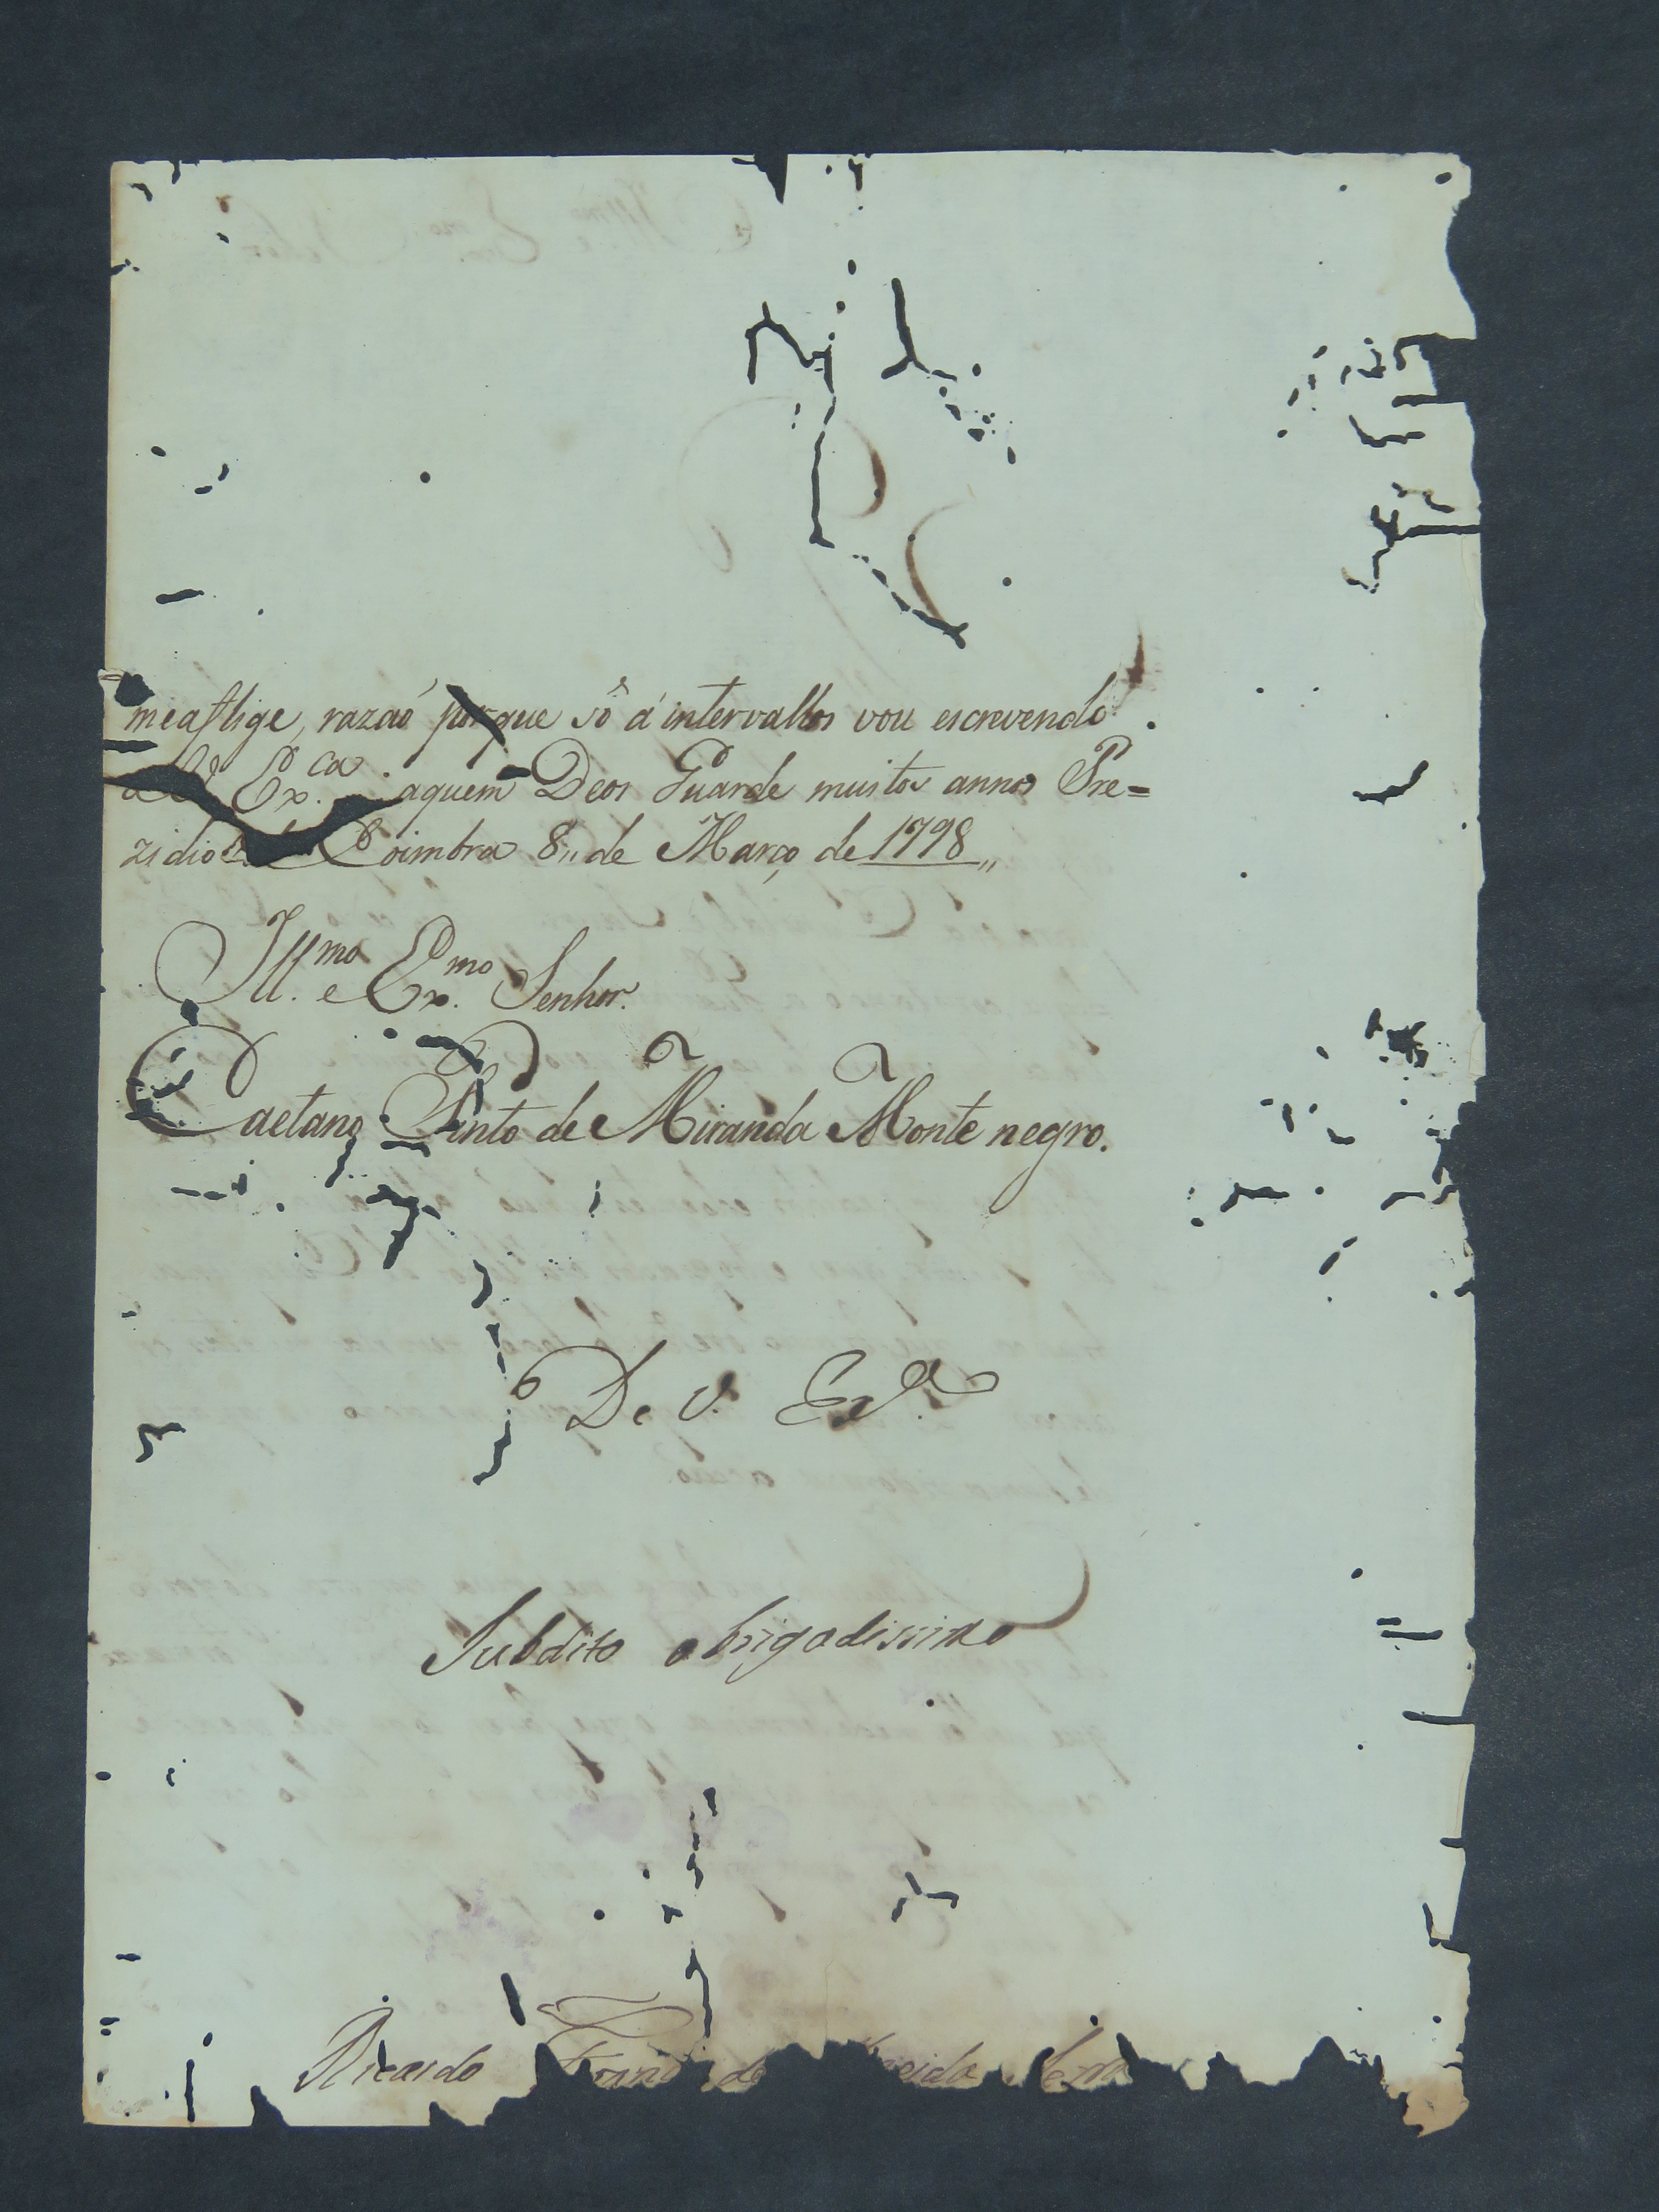 meaflige, razaõ porque só á intervallos vou escrevendo
a V Ex.ca aquem Deos Guarde muitos annos Pre=
zidio de Coimbra 8,, de Março de 1798,,
Ill.mo e Ex.mo Senhor.
Caetano Pinto de Miranda Monte negro.
De V. Ex.ª
Subdito obrigadissimo
Ricardo Fran de eida Serra